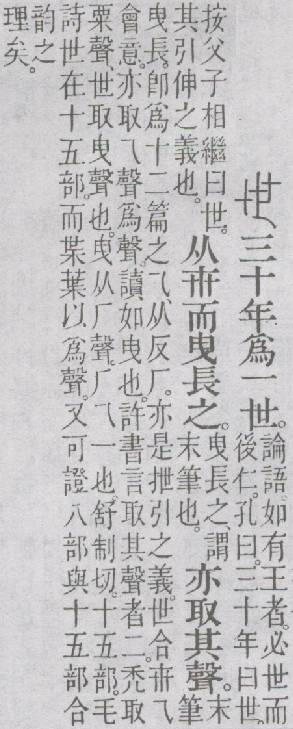 三十年爲一世。
論語。如有王者。必世而
後仁。孔曰。三十年曰世。
按父子相繼曰世。
其引伸之義也。
从卅而曳長之。
曳長之、謂
末筆也。
亦取其聲。
末
筆
曳長。卽爲十二篇之乁、从反厂。亦是抴引之義。世合卅乁
會意。亦取乁聲爲聲。讀如曳也。許書言取其聲者二。禿取
粟聲。世取曳聲也。曳从厂聲。厂乁一也。舒制切。十五部。毛
詩世在十五部。而枼葉以爲聲。又可證八部與十五部合
韵之
理矣。